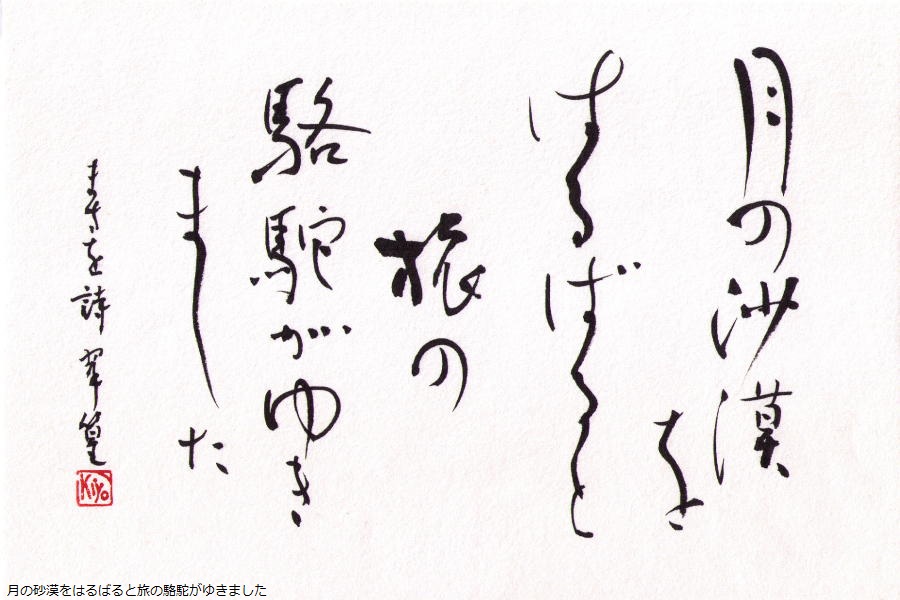 月の沙漠
を
はるばると
旅の
駱駝がゆき
ました
まさを詩 翠篁
Kiyo
月の砂漠をはるばると旅の駱駝がゆきました